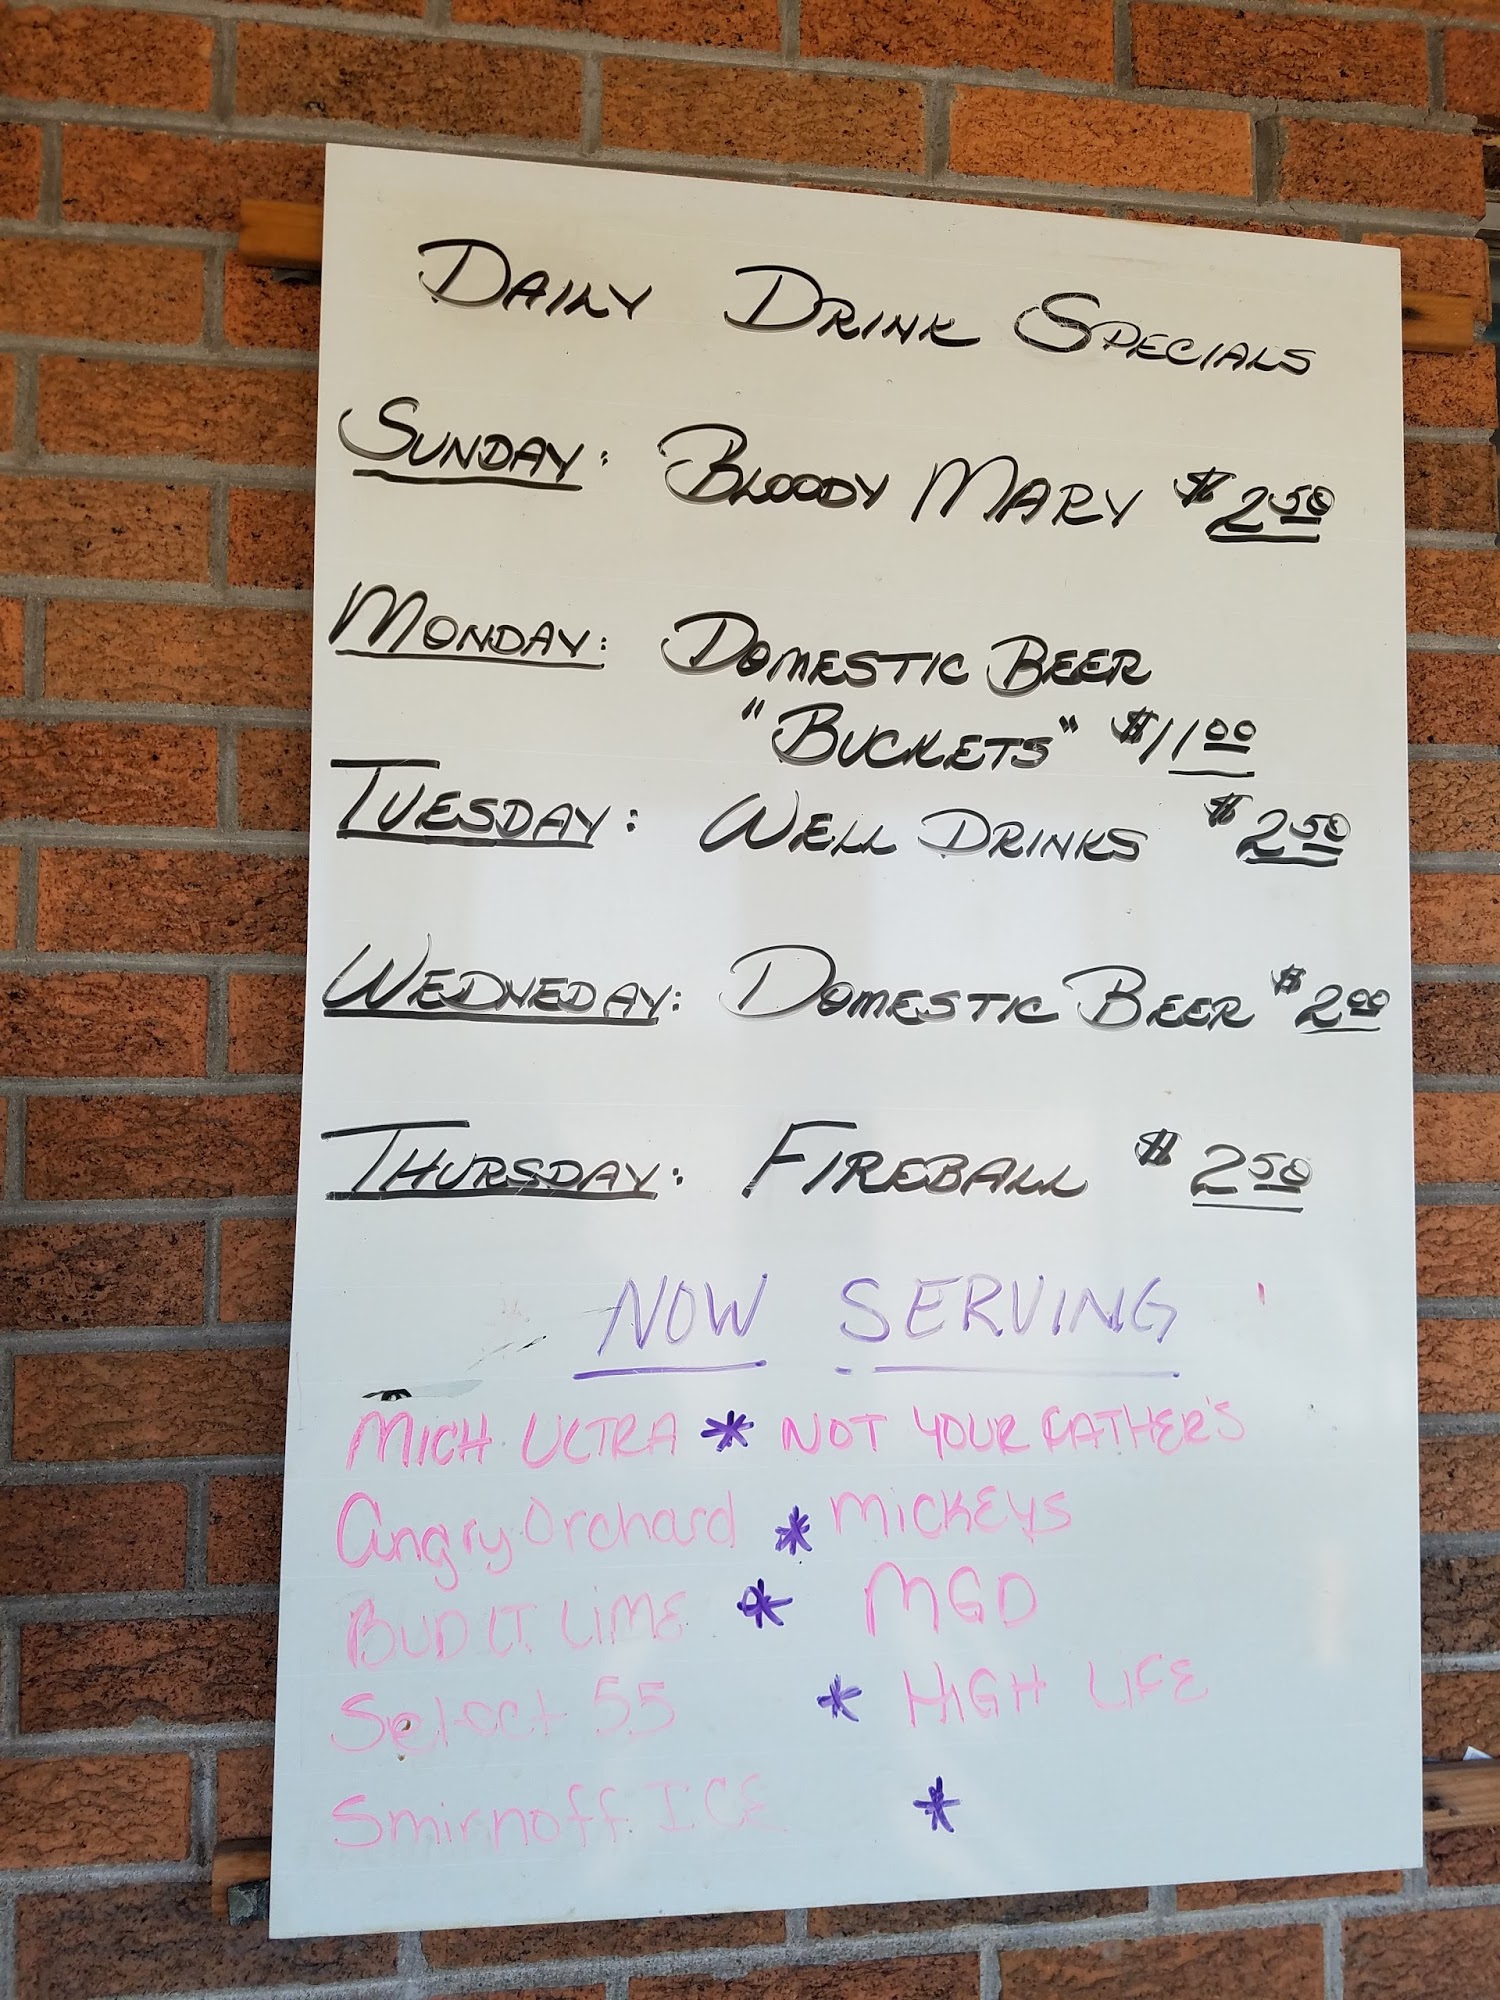 DAILY DRINK SPECIALS
SUNDAY: BLOODY MARY $2.50
MONDAY: DOMESTIC BEER
"BUCKETS" $11.00
TUESDAY: WELL DRINKS $2.50
WEDNEDAY: DOMESTIC BEER $2.00
THURSDAY: FIREBALL $2.50
NOW SERVING
MICH ULTRA * NOT YOUR FATHER'S
Angry Orchard * MICKEYS
BUD LT. LIME * MGD
Select 55 * HIGH LIFE
Smirnoff ICE *